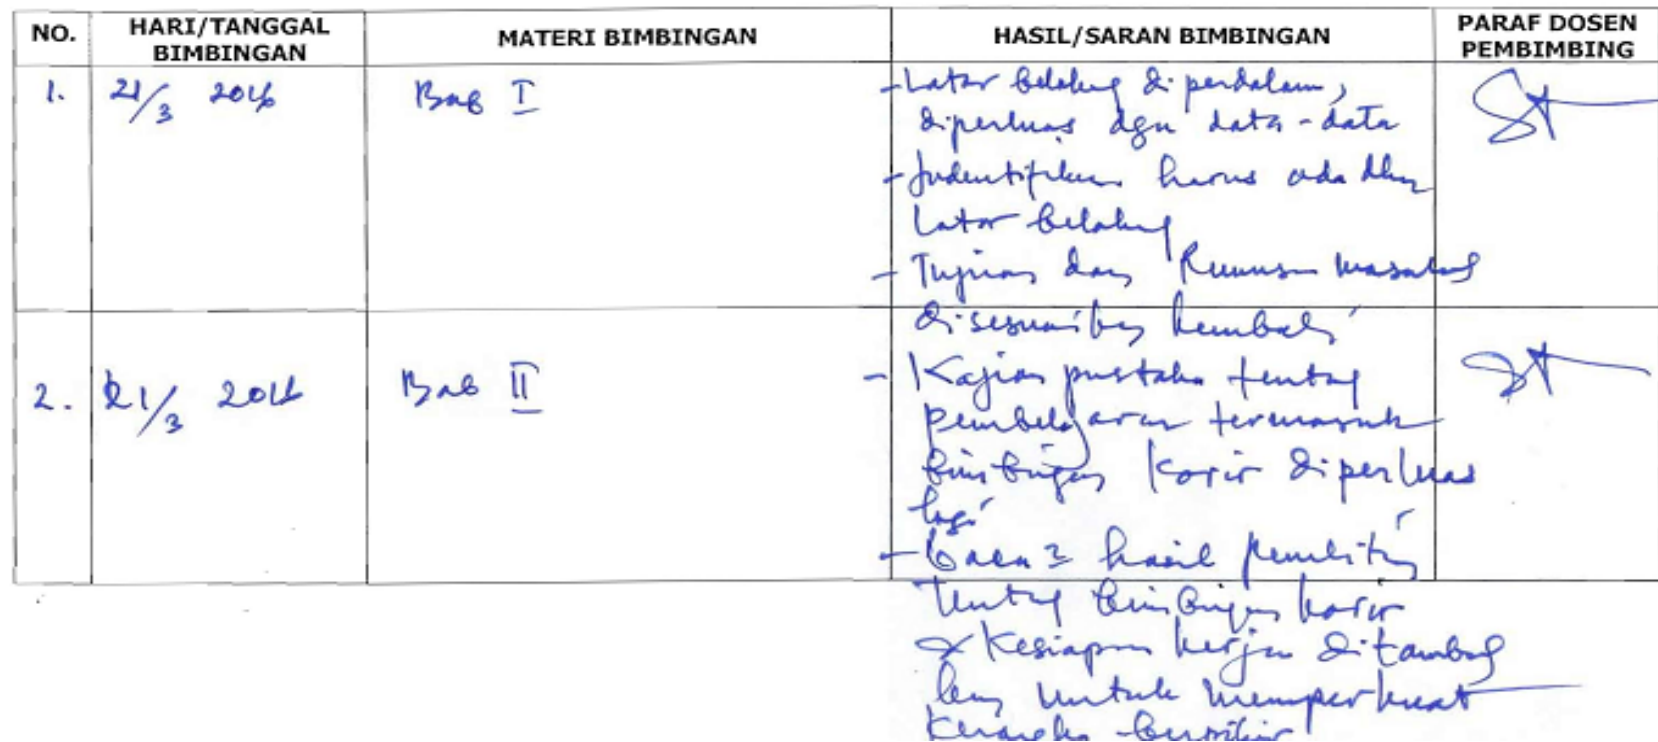 NO. HARI/TANGGAL BIMBINGAN MATERI BIMBINGAN HASIL/SARAN BIMBINGAN PARAF DOSEN PEMBIMBING
1. 21/3 2016 Bab I - Latar belakang diperdalam,
diperluas dgn data-data
- Indentifikasi harus ada dlm
Latar belakang
- Tujuan dan Rumusan masalah
disesuaikan kembali
2. 21/3 2016 Bab II - Kajian pustaka tentang
pembelajaran termasuk
bimbingan karir diperluas
lagi
- baca2 hasil penelitian
tentang bimbingan karir
& Kesiapan kerja ditambah
kan untuk memperkuat
Kerangka berpikir